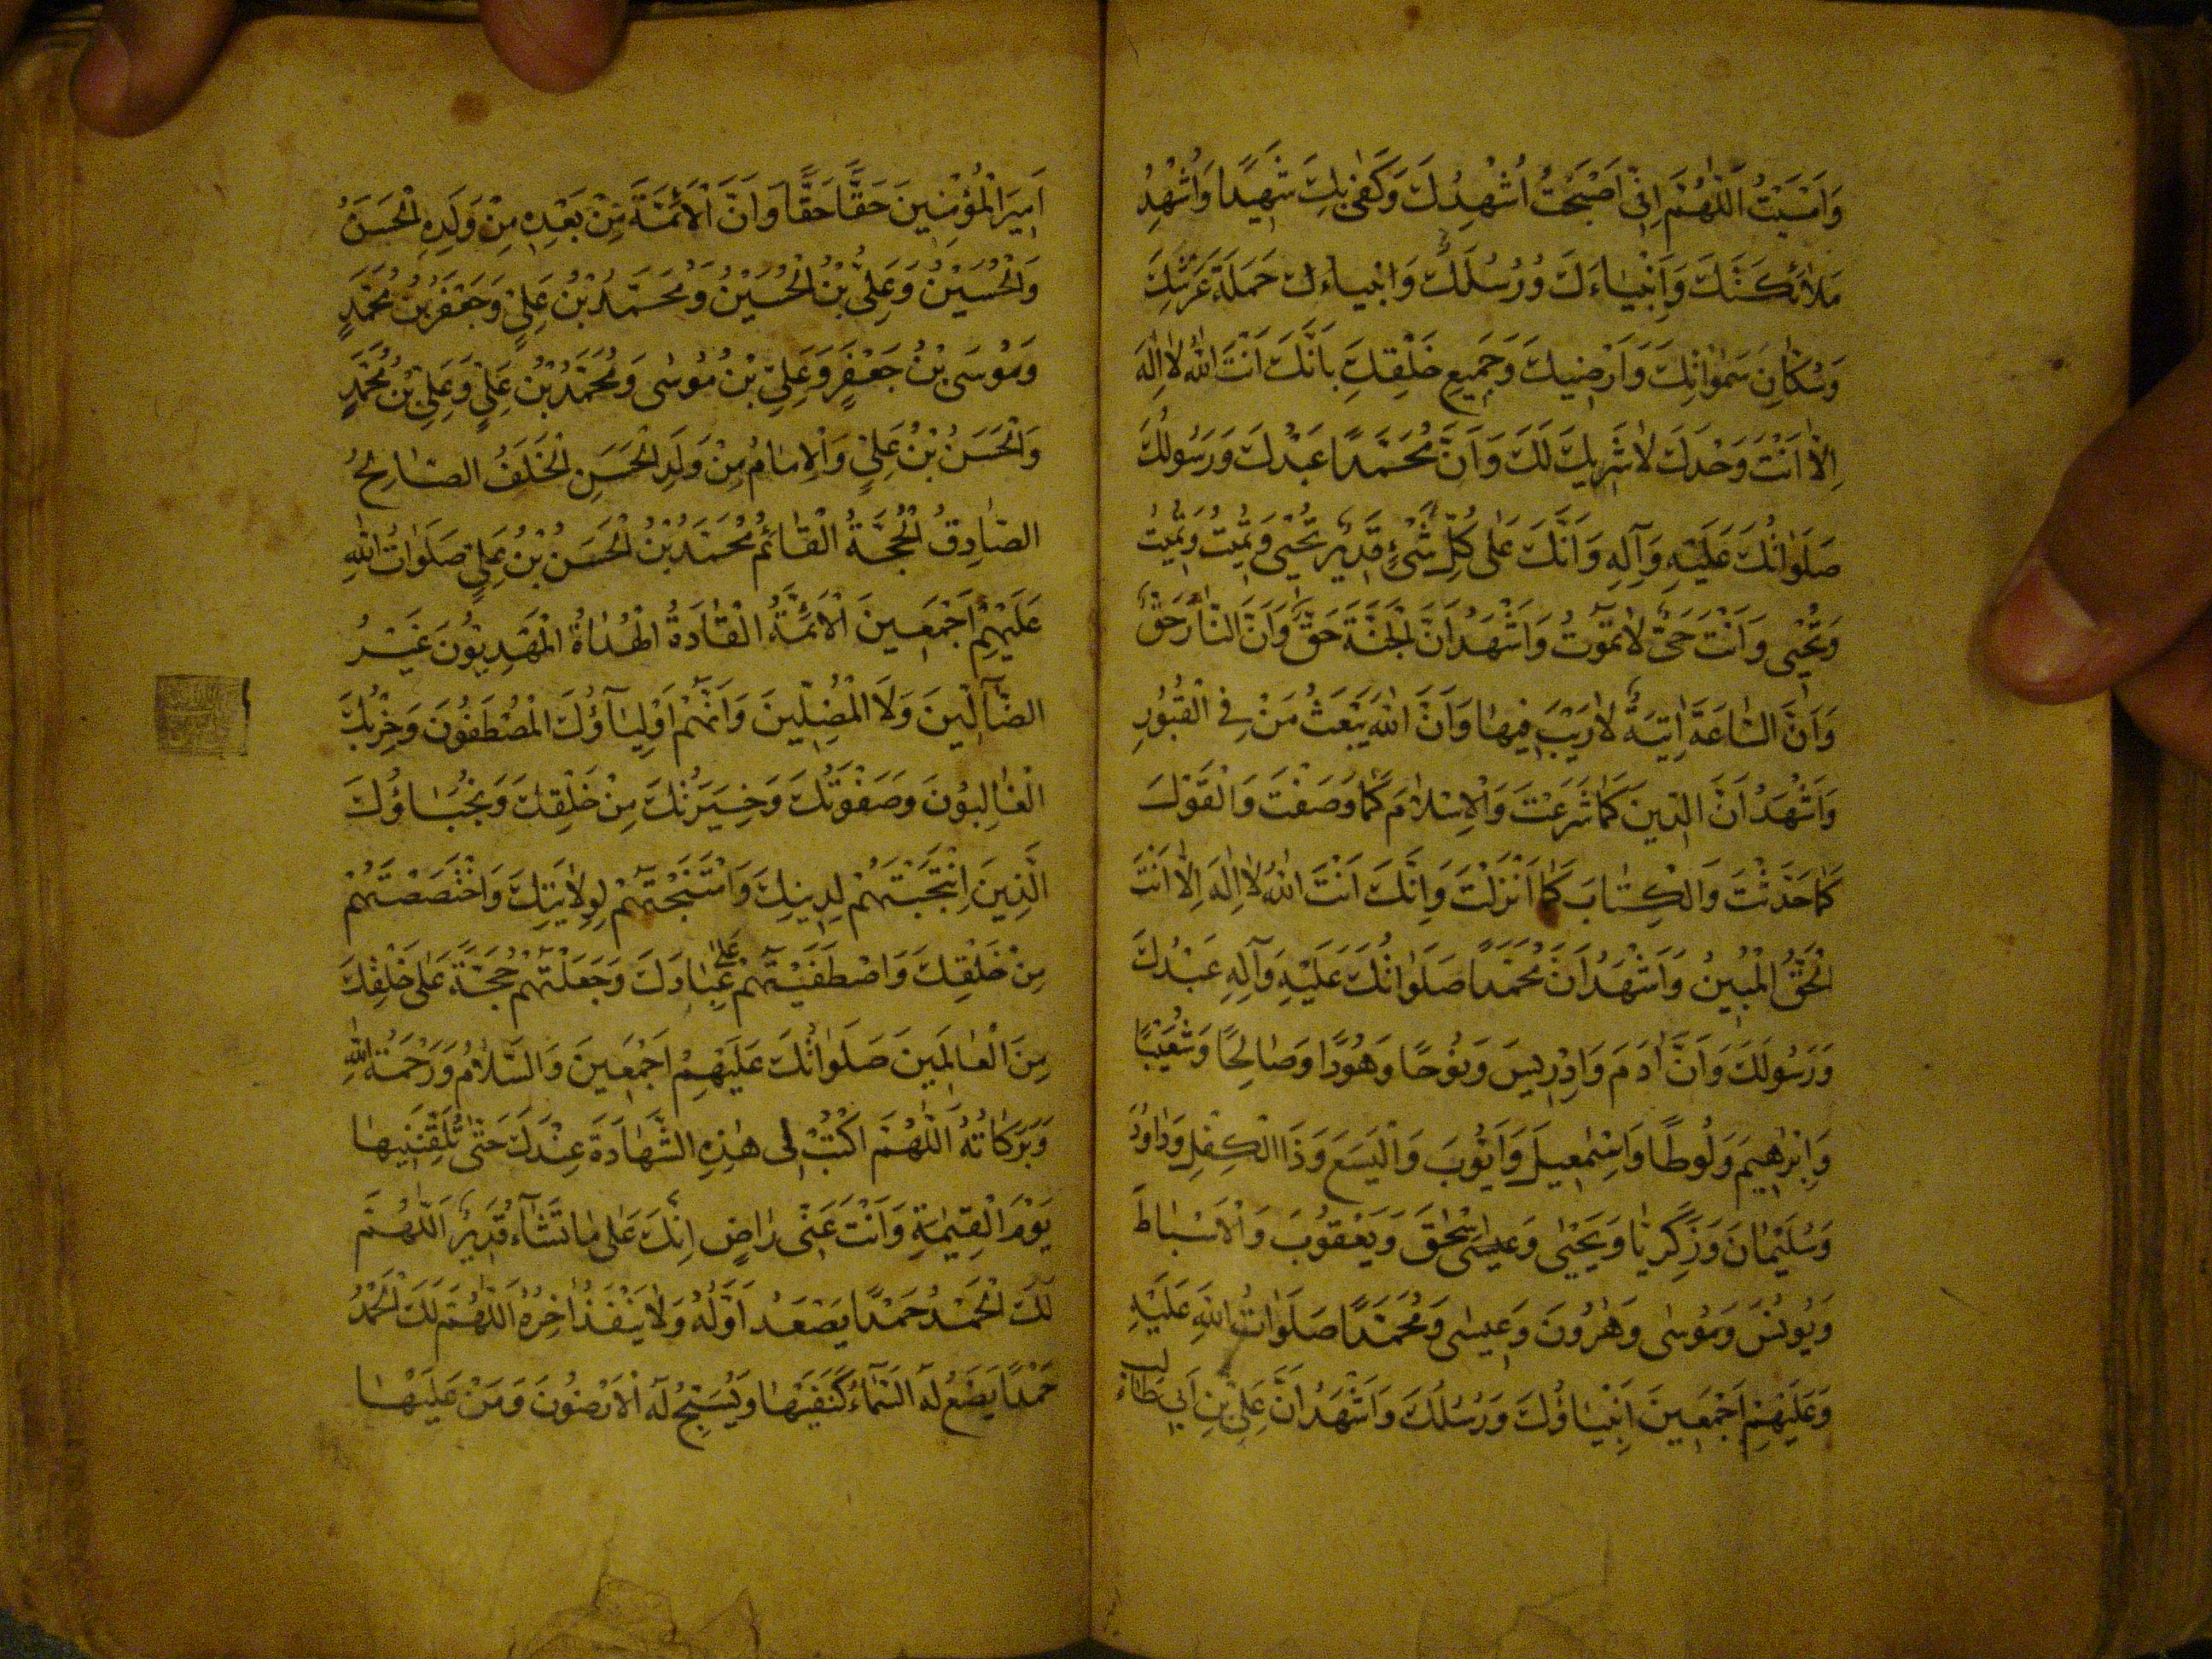 وَاَمْسَيْتُ اَللّٰهُمَّ اِنّٖى اَصْبَحْتُ اُشْهِدُكَ وَكَفٰى بِكَ شَهِيدًا وَاُشْهِدُ
مَلَائِكَتَكَ وَاَنْبِيَاءَكَ وَرُسُلَكَ وَاَنْبِيَاءَكَ حَمَلَةَ عَرْشِكَ
وَسُكَّانَ سَمٰوَاتِكَ وَاَرْضِيكَ وَجَمِيعِ خَلْقِكَ بِاَنَّكَ اَنْتَ اللّٰهُ لَا اِلٰهَ
اِلَّا اَنْتَ وَحْدَكَ لَا شَرِيكَ لَكَ وَاَنَّ مُحَمَّدًا عَبْدُكَ وَرَسُولُكَ
صَلَوَاتُكَ عَلَيْهِ وَآلِهِ وَاَنَّكَ عَلٰى كُلِّ شَىْءٍ قَدِيرٌ تُحْيٖى وَتُمِيتُ وَتُمِيتُ
وَتُحْيٖى وَاَنْتَ حَىٌّ لَا تَمُوتُ وَاَشْهَدُ اَنَّ الْجَنَّةَ حَقٌّ وَاَنَّ النَّارَ حَقٌّ
وَاَنَّ السَّاعَةَ اٰتِيَةٌ لَا رَيْبَ فِيهَا وَاَنَّ اللّٰهَ يَبْعَثُ مَنْ فِى الْقُبُورِ
وَاَشْهَدُ اَنَّ الدِّينَ كَمَا شَرَعْتَ وَالْاِسْلَامَ كَمَا وَصَفْتَ وَالْقَوْلَ
كَمَا حَدَّثْتَ وَالْكِتَابَ كَمَا اَنْزَلْتَ وَاِنَّكَ اَنْتَ اللّٰهُ لَا اِلٰهَ اِلَّا اَنْتَ
الْحَقُّ الْمُبِينُ وَاَشْهَدُ اَنَّ مُحَمَّدًا صَلَوَاتُكَ عَلَيْهِ وَآلِهِ عَبْدُكَ
وَرَسُولُكَ وَاَنَّ اٰدَمَ وَاِدْرِيسَ وَنُوحًا وَهُودًا وَصَالِحًا وَشُعَيْبًا
وَاِبْرٰهِيمَ وَلُوطًا وَاِسْمٰعِيلَ وَاَيُّوبَ وَالْيَسَعَ وَذَا الْكِفْلِ وَدَاوُدَ
وَسُلَيْمَانَ وَزَكَرِيَّا وَيَحْيٰى وَعِيسٰى اِسْحٰقَ وَيَعْقُوبَ وَالْاَسْبَاطَ
وَيُونُسَ وَمُوسٰى وَهٰرُونَ وَعِيسٰى وَمُحَمَّدًا صَلَوَاتُ اللّٰهِ عَلَيْهِ
وَعَلَيْهِمْ اَجْمَعِينَ اَنْبِيَاؤُكَ وَرُسُلُكَ وَاَشْهَدُ اَنَّ عَلِىَّ بْنَ اَبِى طَالِبٍ
اَمِيرَ الْمُؤْمِنِينَ حَقًّا حَقًّا وَاَنَّ الْاَئِمَّةَ مِنْ بَعْدِهِ مِنْ وَلَدِهِ الْحَسَنُ
وَالْحُسَيْنُ وَعَلِىُّ بْنُ الْحُسَيْنِ وَمُحَمَّدُ بْنُ عَلِىٍّ وَجَعْفَرُ بْنُ مُحَمَّدٍ
وَمُوسَى بْنُ جَعْفَرٍ وَعَلِىِّ بْنُ مُوسٰى وَمُحَمَّدُ بْنُ عَلِىٍّ وَعَلِىِّ بْنُ مُحَمَّدٍ
وَالْحَسَنُ بْنُ عَلِىٍّ وَالْاِمَامُ مِنْ وَلَدِ الْحَسَنِ الْخَلَفُ الصَّالِحُ
الصَّادِقُ الْحُجَّةُ الْقَائِمُ مُحَمَّدُ بْنُ الْحَسَنِ بْنُ عَلِىٍّ صَلَوَاتُ اللّٰهِ
عَلَيْهِمْ اَجْمَعِينَ الْاَئِمَّةُ الْقَادَةُ الْهُدَاةُ الْمَهْدِيُّونَ غَيْرُ
الضَّآلِّينَ وَلَا الْمُضِلِّينَ وَاَنَّهُمْ اَوْلِيَآؤُكَ الْمُصْطَفُونَ وَحِزْبُكَ
الْغَالِبُونَ وَصَفْوَتُكَ وَخِيَرَتُكَ مِنْ خَلْقِكَ وَنُجَبَاؤُكَ
الَّذِينَ انْتَجَبْتَهُمْ لِدِينِكَ وَ لِوِلَايَتِكَ وَاخْتَصَصْتَهُمْ
مِنْ خَلْقِكَ وَاصْطَفَيْتَهُمْ عَلٰى عِبَادِكَ وَجَعَلْتَهُمْ حُجَّةً عَلٰى خَلْقِكَ
مِنَ الْعَالَمِينَ صَلَوَاتُكَ عَلَيْهِمْ اَجْمَعِينَ وَالسَّلَامُ وَرَحْمَةُ اللّٰهِ
وَبَرَكَاتُهُ اَللّٰهُمَّ اكْتُبْ لِى هٰذِهِ الشَّهَادَةَ عِنْدَكَ حَتّٰى تُلَقِّنَنِيهَا
يَوْمَ الْقِيٰمَةِ وَاَنْتَ عَنّٖى رَاضٍ اِنَّكَ عَلٰى مَا تَشَآءُ قَدِيرٌ اَللّٰهُمَّ
لَكَ الْحَمْدُ حَمْدًا يَصْعَدُ اَوَّلُهُ وَلَا يَنْفَدُ اٰخِرُهُ اَللّٰهُمَّ لَكَ الْحَمْدُ
حَمْدًا يَضَعُ لَهُ السَّمَآءُ كَنَفَيْهَا وَيُسَبِّحُ لَهُ الْاَرَضُونَ وَمَنْ عَلَيْهَا